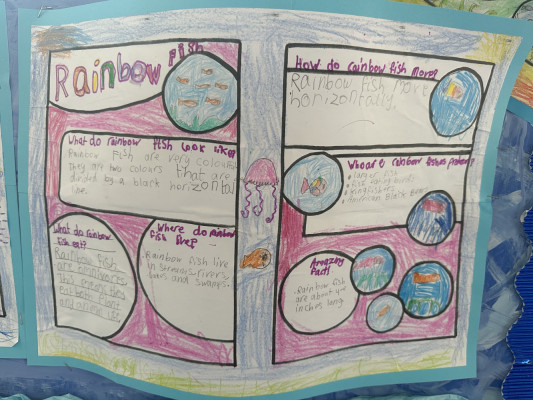 Rainbow Fish
What do rainbow fish look like?
Rainbow fish are very colourful
they are two colours that are
divided by a black horizontal
line.
What do rainbow
fish eat?
Rainbow fish
are omnivores
this means they
eat both plants
and animals
Where do rainbow
fish
Rainbow fish live
in streams, rivers,
and swamps.
How do rainbow fish move?
Rainbow fish move
horizontally.
Who are rainbow fishes predators?
Larger fish
Fish eating birds
Kingfishers
American Black Bear
Amazing
fact
Rainbow fish
are about 4-5
inches long